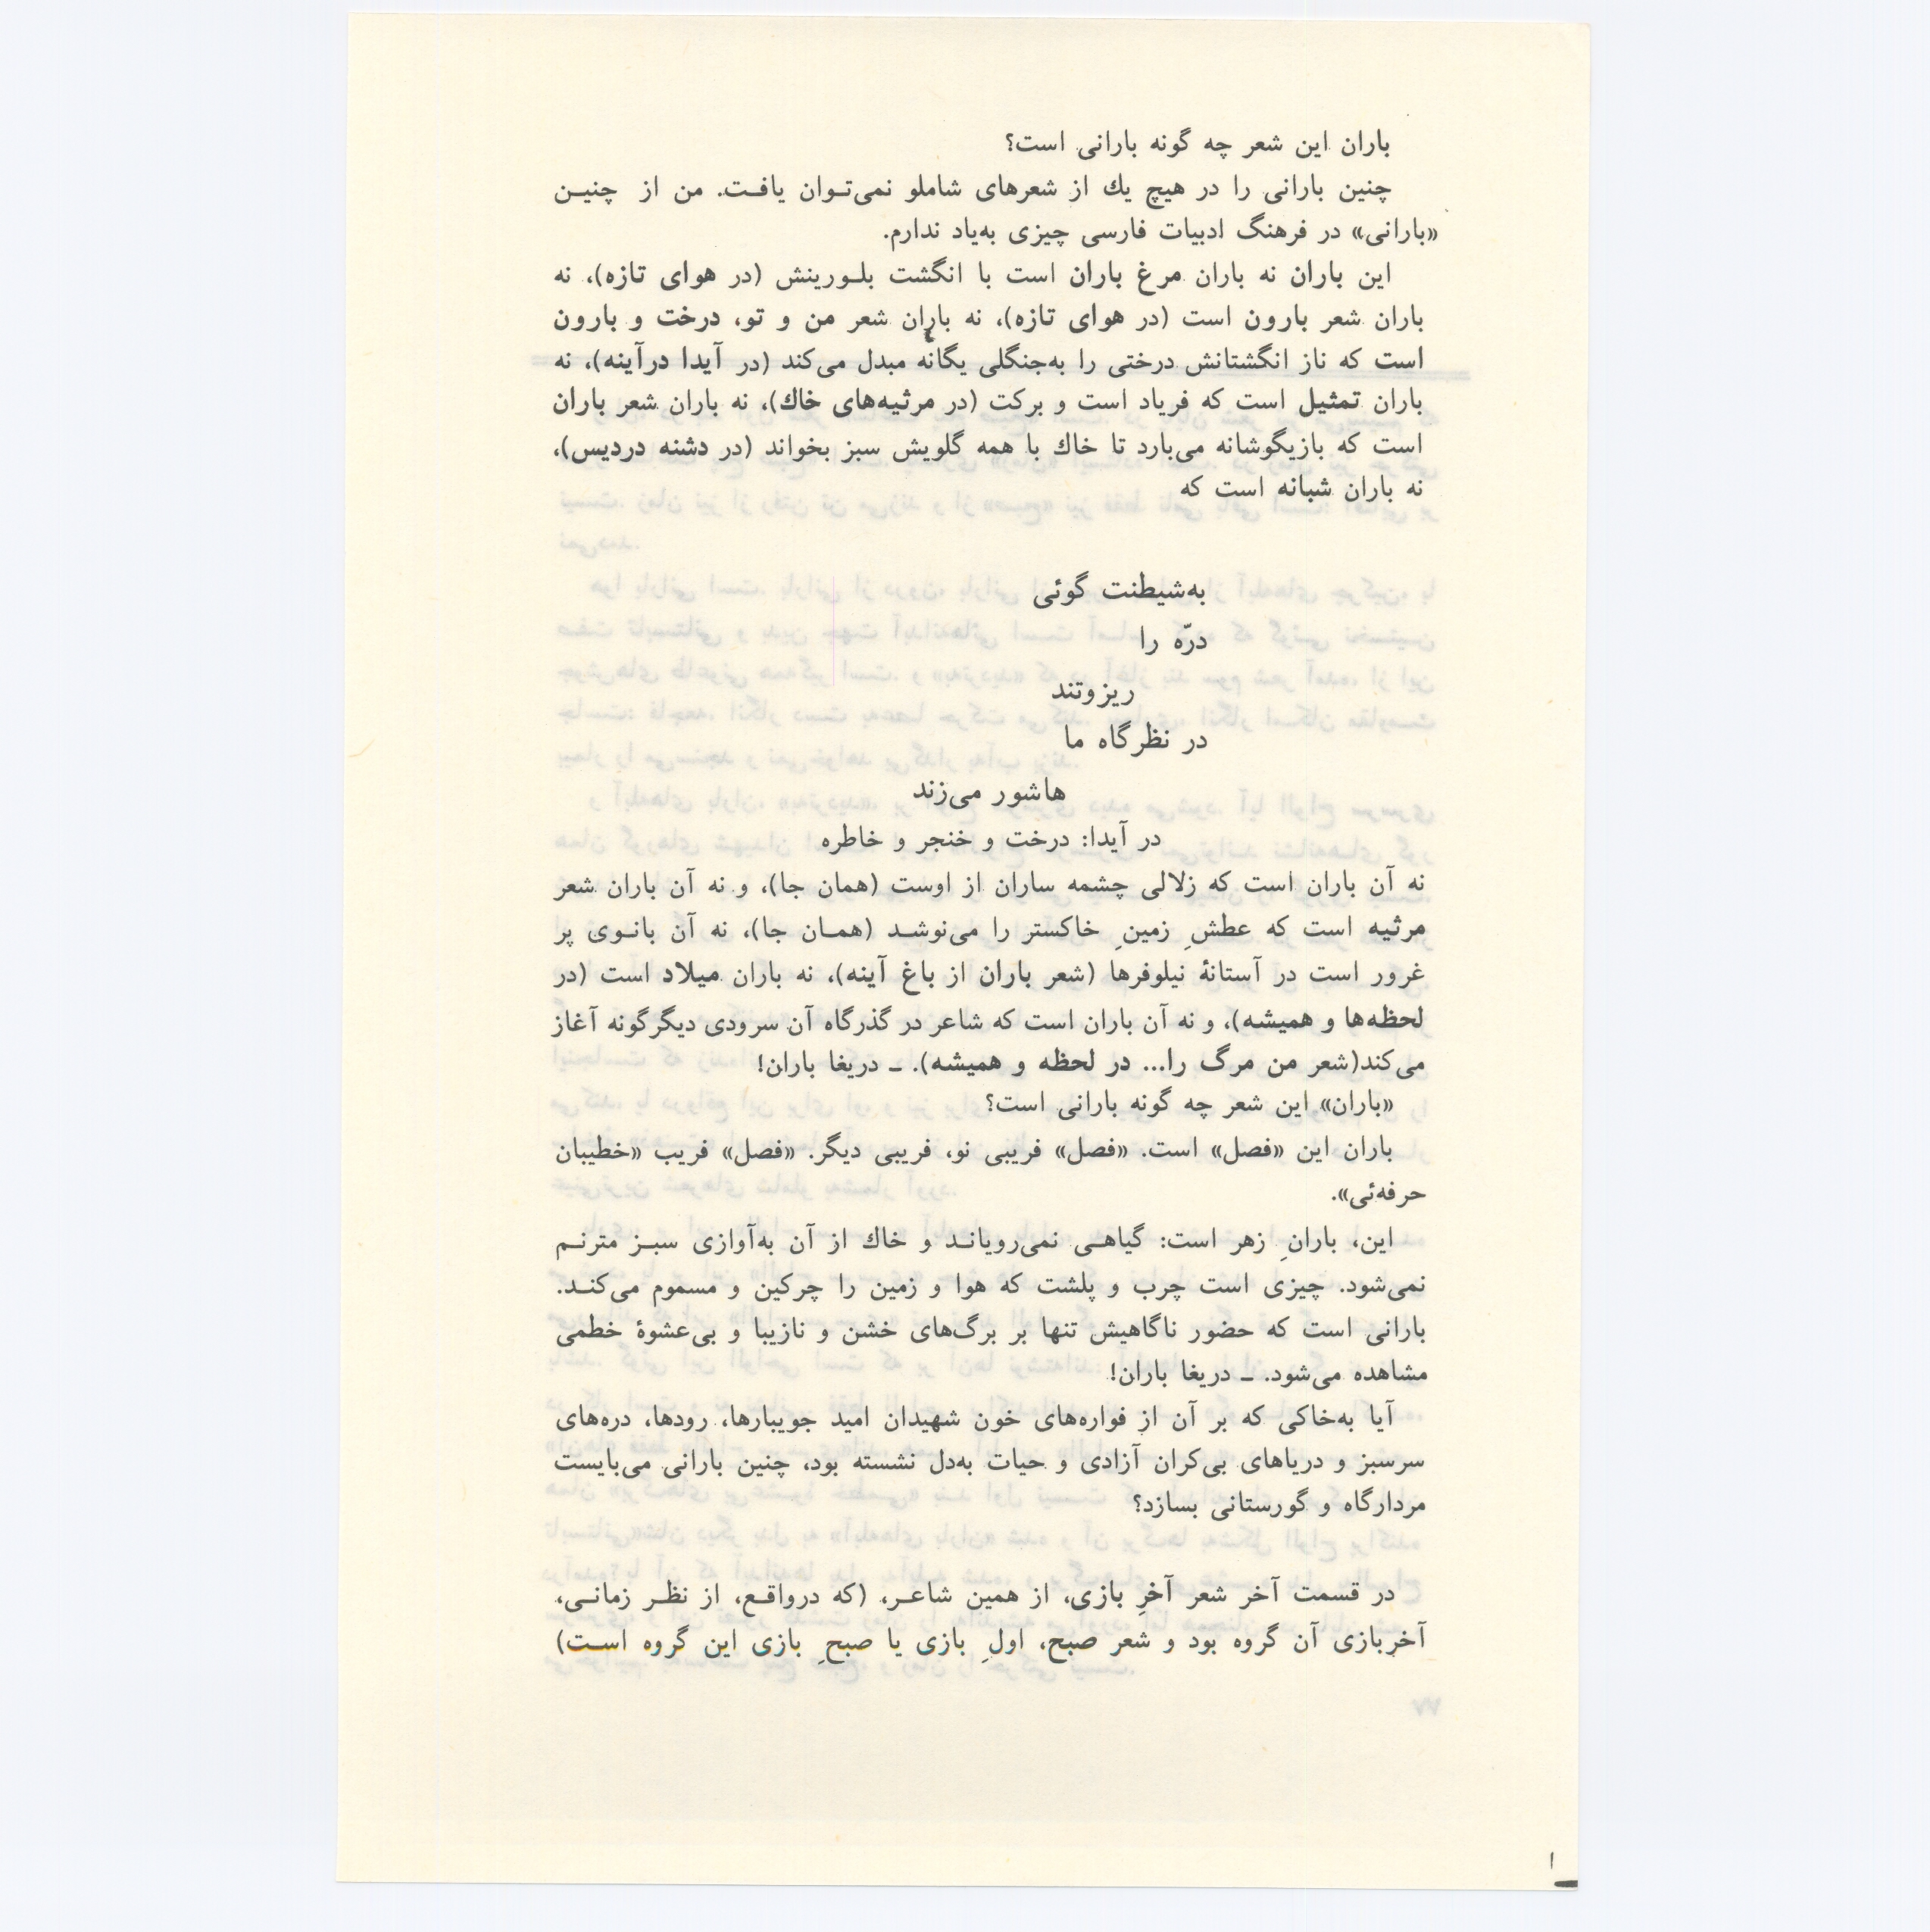 باران این شعر چه گونه بارانی است؟
چنین بارانی را در هیچ یك از شعرهای شاملو نمی‌تـوان یافـت. من از چنیـن
«بارانی» در فرهنگ ادبیات فارسی چیزی به‌یاد ندارم.
این باران نه باران مرغ باران است با انگشت بلـورینش (در هوای تازه)، نه
باران شعر بارون است (در هوای تازه)، نه باران شعر من و تو، درخت و بارون
است که ناز انگشتانش درختی را به‌جنگلی یگانه مبدل می‌کند (در آیدا درآینه)، نه
باران تمثیل است که فریاد است و برکت (در مرثیه‌های خاك)، نه باران شعر باران
است که بازیگوشانه می‌بارد تا خاك با همه گلویش سبز بخواند (در دشنه دردیس)،
نه باران شبانه است که
به‌شیطنت گوئی
درّه را
ریزوتند
در نظرگاه ما
هاشور می‌زند
در آیدا: درخت و خنجر و خاطره
نه آن باران است که زلالی چشمه ساران از اوست (همان جا)، و نه آن باران شعر
مرثیه است که عطشِ زمینِ خاکستر را می‌نوشـد (همـان جا)، نه آن بانـوی پر
غرور است در آستانهٔ نیلوفرها (شعر باران از باغ آینه)، نه باران میلاد است (در
لحظه‌ها و همیشه)، و نه آن باران است که شاعر در گذرگاه آن سرودی دیگرگونه آغاز
می‌کند(شعر من مرگ را... در لحظه و همیشه). ـ دریغا باران!
«باران» این شعر چه گونه بارانی است؟
باران این «فصل» است. «فصل» فریبی نو، فریبی دیگر. «فصل» فریب «خطیبان
حرفه‌ئی».
این، بارانِ زهر است: گیاهـی نمی‌رویانـد و خاك از آن به‌آوازی سبـز مترنـم
نمی‌شود. چیزی است چرب و پلشت که هوا و زمین را چرکین و مسموم می‌کنـد.
بارانی است که حضور ناگاهیش تنها بر برگ‌های خشن و نازیبا و بی‌عشوهٔ خطمی
مشاهده می‌شود. ـ دریغا باران!
آیا به‌خاکی که بر آن از فواره‌های خون شهیدان امید جویبارها، رودها، دره‌های
سرسبز و دریاهای بی‌کران آزادی و حیات به‌دل نشسته بود، چنین بارانی می‌بایست
مردارگاه و گورستانی بسازد؟
در قسمت آخر شعر آخرِ بازی، از همین شاعـر، (که درواقـع، از نظـر زمانـی،
آخرِبازی آن گروه بود و شعر صبح، اولِ بازی یا صبحِ بازی این گروه اسـت)